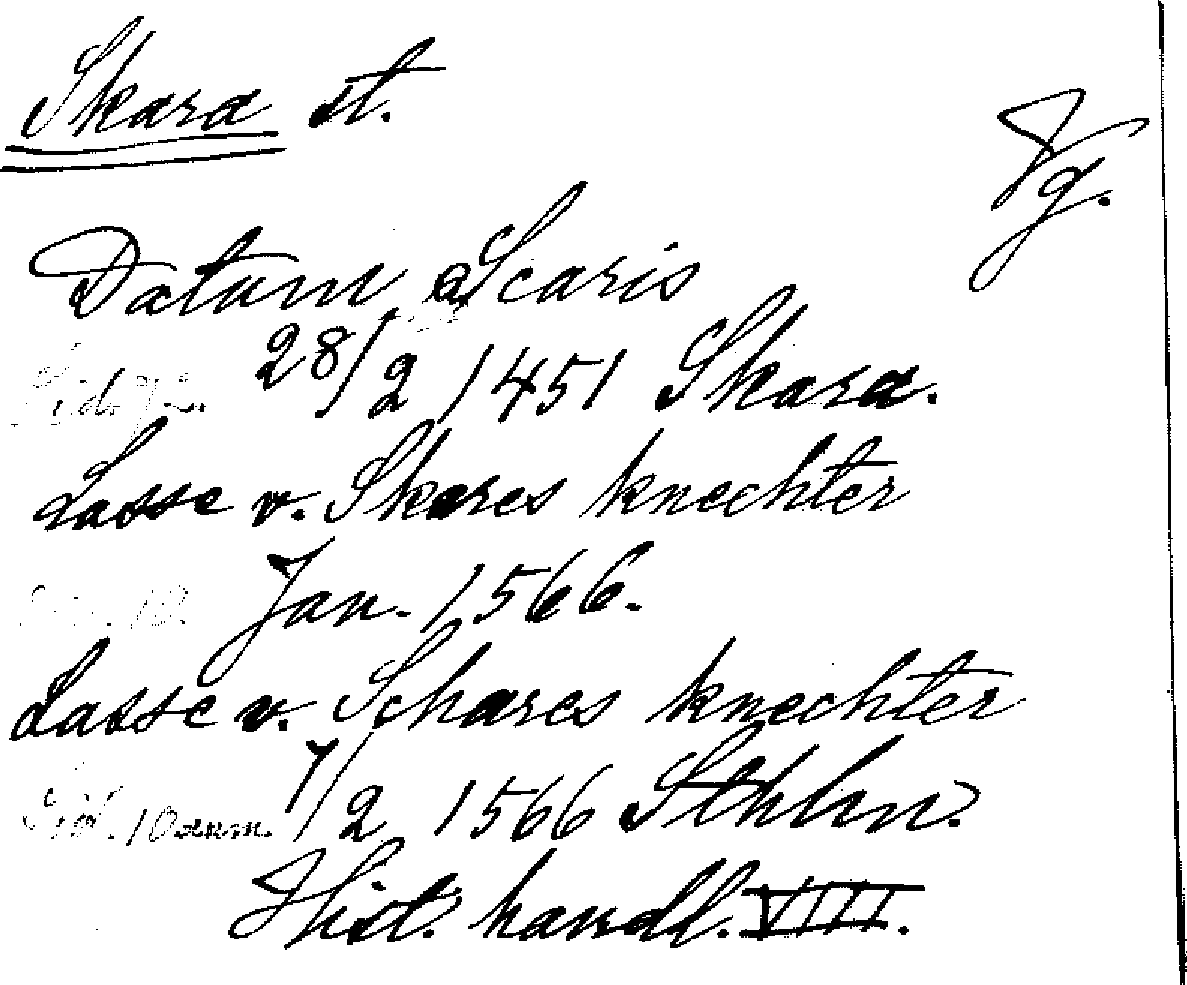 Skara st.
Vg.
Datum Scaris
28/2 1451 Skara.
Lasse v. Skares knechter
Jan. 1566.
Lasse v. Schares knechter
Sid. 10 anm. 7/2 1566 Sthlm.
Hist. handl. VIII.